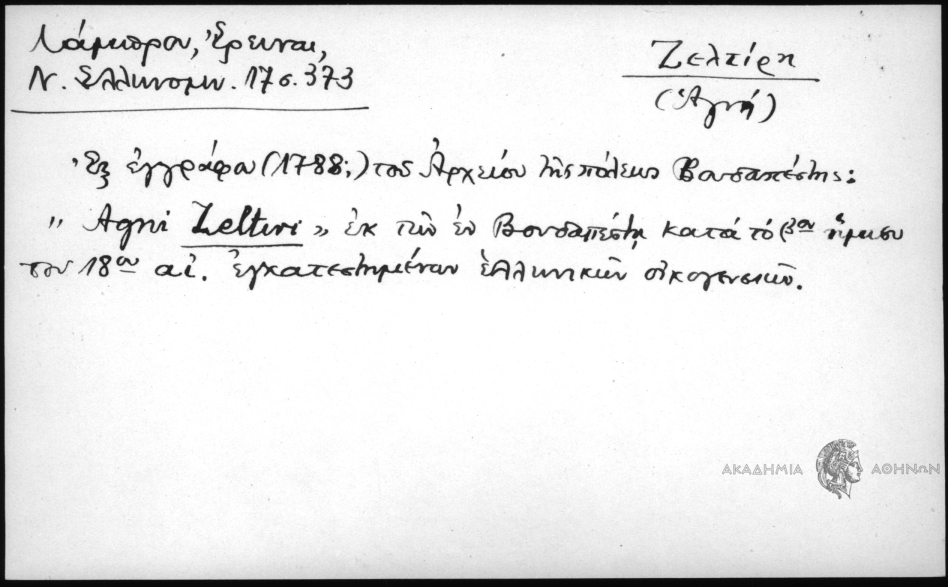 Λάμπρου, Ἔρευναι,
Ν. Ἑλληνομν. 17 σ. 373
Ζελτίρη
(Ἁγνή)
Ἐξ ἐγγράφου (1788;) τοῦ Ἀρχείου τῆς πόλεως Βουδαπέστης:
„ Agni Zeltiri „ ἐκ τῶν ἐν Βουδαπέστῃ κατὰ τὸ βον ἥμισυ
τοῦ 18ου αἰ. ἐγκατεστημένων ἑλληνικῶν οἰκογενειῶν.
ΑΚΑΔΗΜΙΑ ΑΘΗΝΩΝ